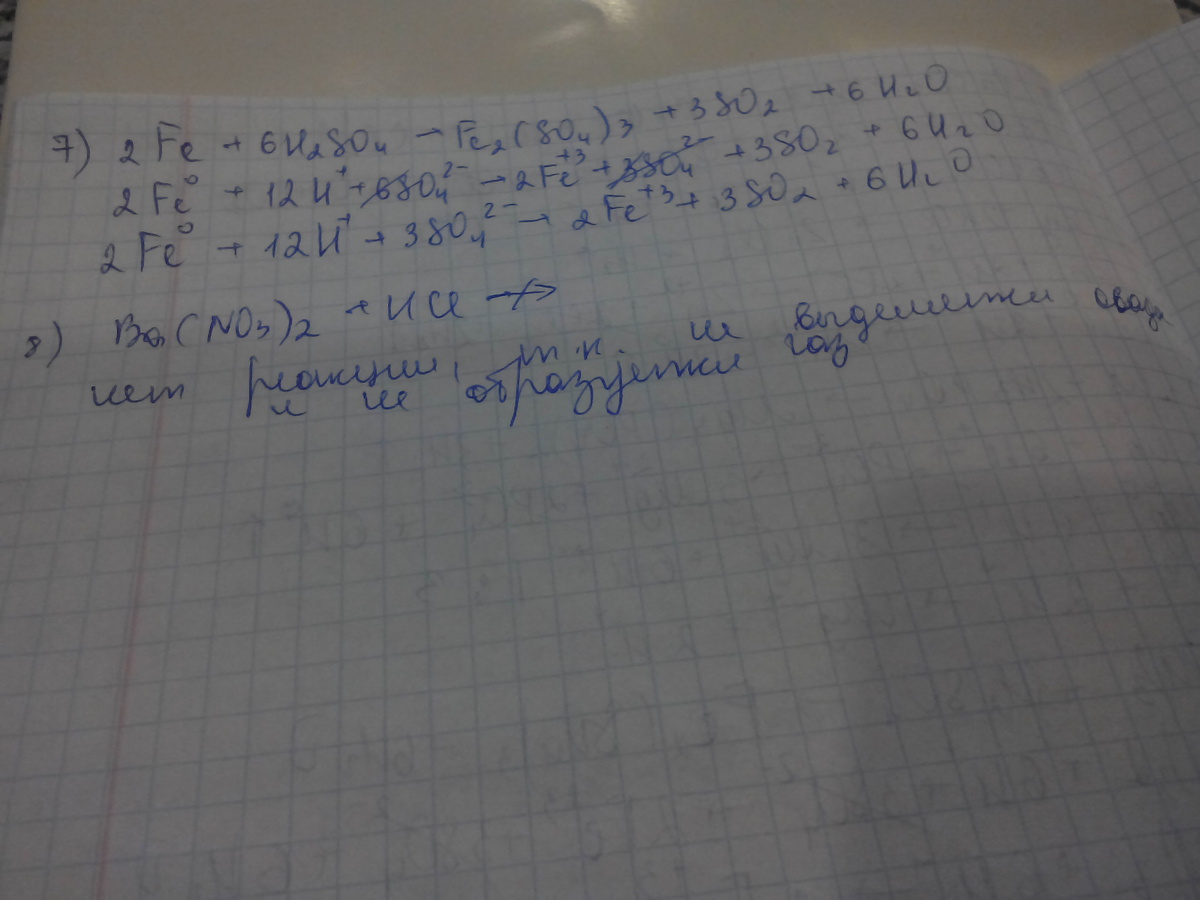 7) 2Fe + 6H₂SO₄ → Fe₂(SO₄)3 + 3SO₂ + 6H₂O
2Fe⁰ + 12H⁺ + 6SO₄²⁻ → 2Fe⁺³ + 3SO₄²⁻ + 3SO₂ + 6H₂O
2Fe⁰ + 12H⁺ + 3SO₄²⁻ → 2Fe⁺³ + 3SO₂ + 6H₂O
8) Ba(NO₃)₂ + HCl ↛
нет реакции, т.к. не выделяется
и не образуется газ